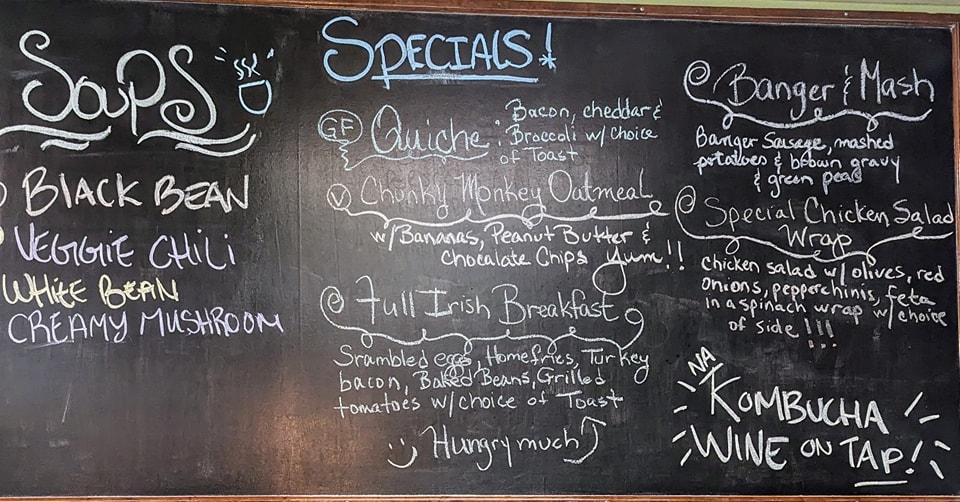 Soups
BLACK BEAN
VEGGIE CHILI
WHITE BEAN
CREAMY MUSHROOM
SPECIALS!
GF Quiche: Bacon, cheddar &
Broccoli w/ choice
of Toast
V Chunky Monkey Oatmeal
w/ Bananas, Peanut Butter &
Chocalate Chips Yum!!
Full Irish Breakfast
Srambled eggs, Homefries, Turkey
bacon, Baked Beans, Grilled
tomatoes w/ choice of Toast
Hungry much?
Banger & Mash
Banger Sausage, mashed
potatoes & brown gravy
& green peas
Special Chicken Salad
Wrap
chicken salad w/ olives, red
onions, pepperchinis, feta
in a spinach wrap w/ choice
of side!!!
NA
KOMBUCHA
WINE ON TAP!